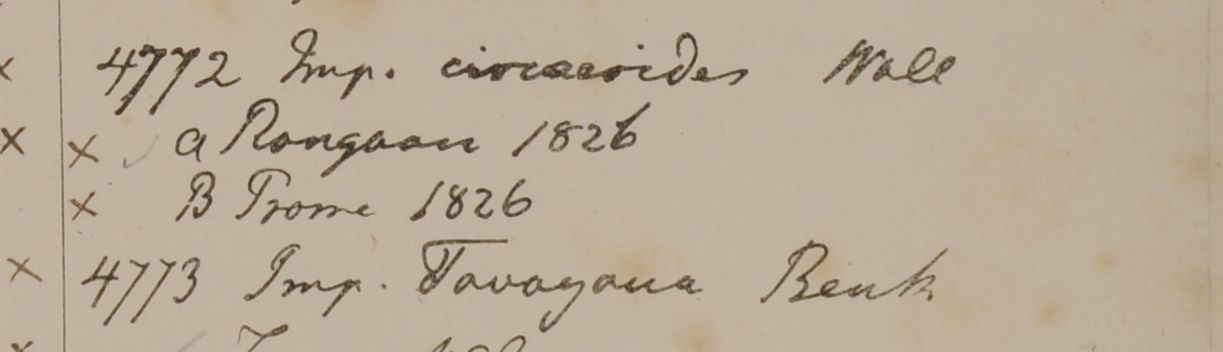 4772 Imp. circaeoides Wall
a Rangoon 1826
B Prome 1826
4773 Imp. Tavoyana Benth